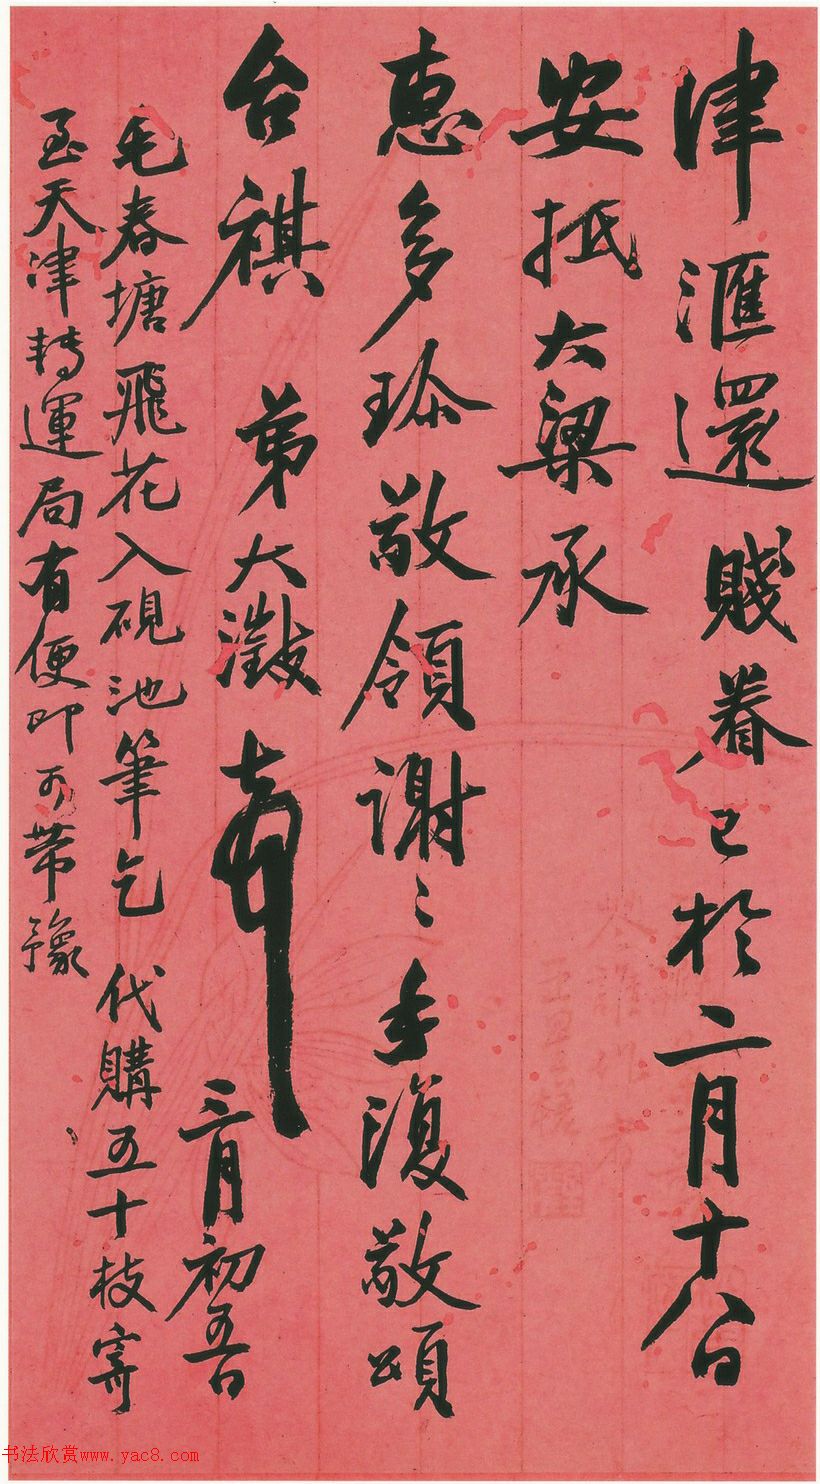 津滙還賤眷已於二月十八日
安抵大梁承
惠多珍敬領謝〻手復敬頌
台祺 弟大澂頓首 三月初五日
毛春塘飛花入硯池筆乞 代購五十枝寄
至天津轉運局有便即可帶豫
书法欣赏www.yac8.com